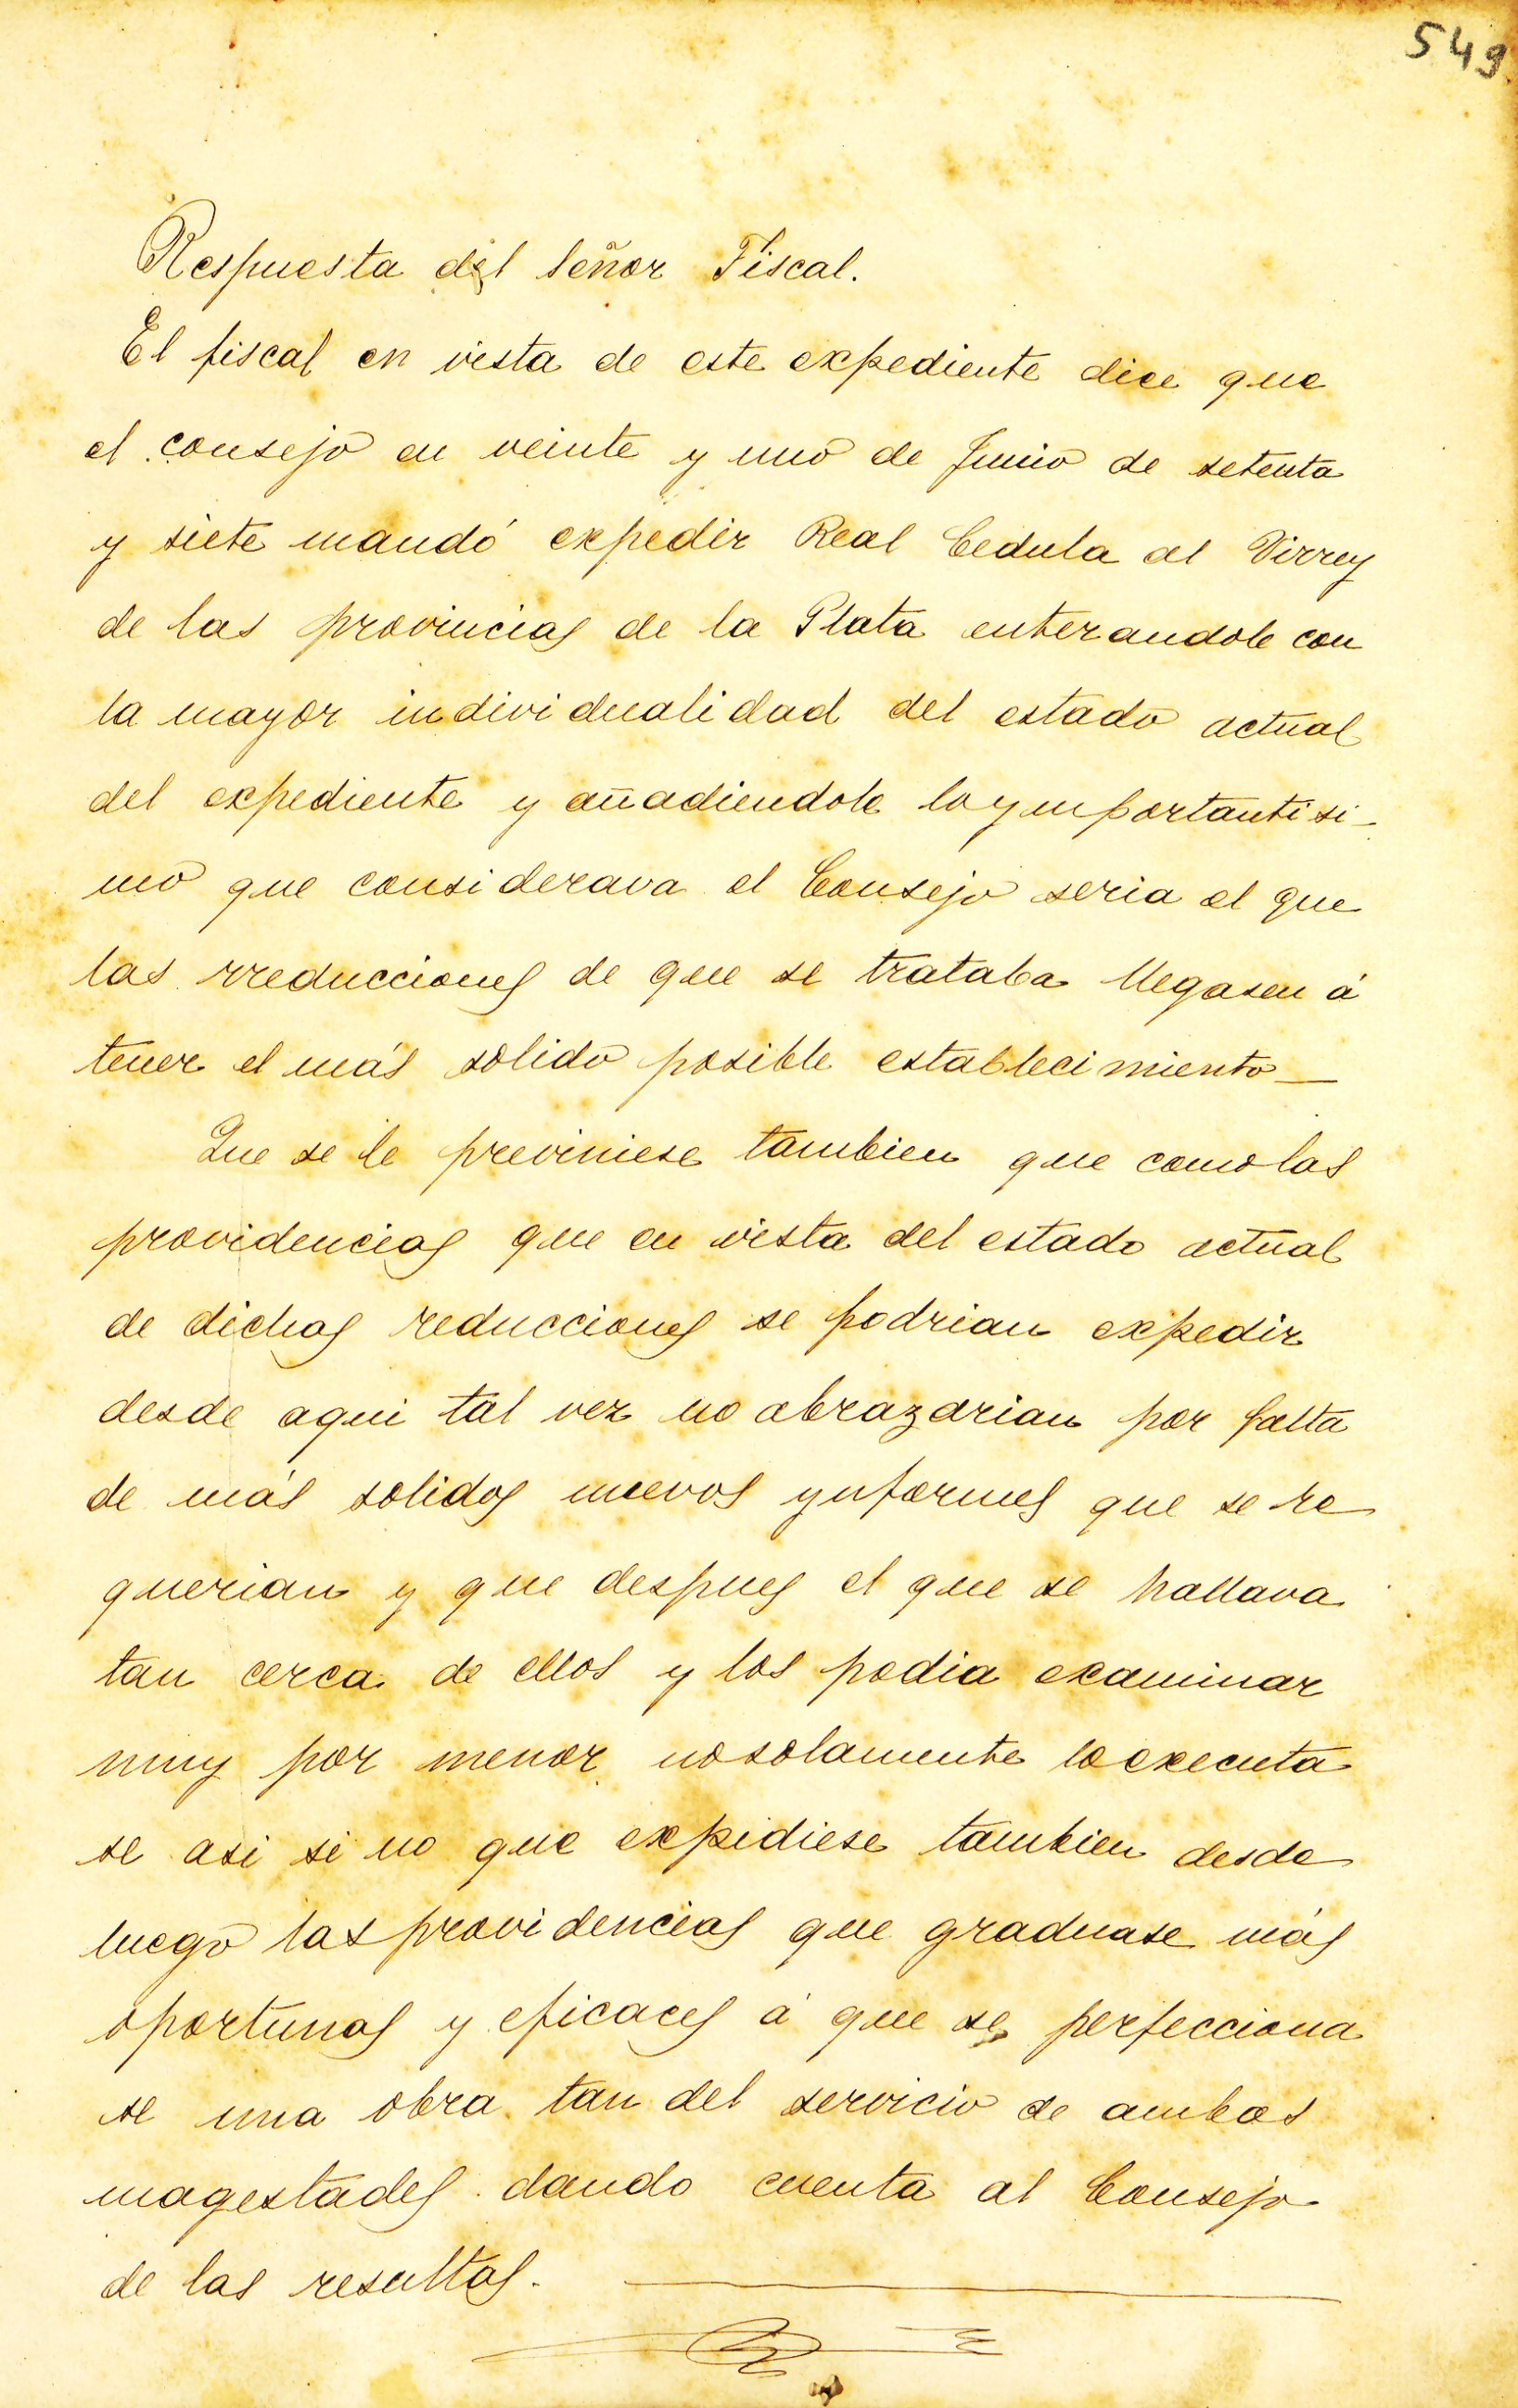 549
Respuesta del Señor Fiscal.
El fiscal en vista de este expediente dice que
el consejo en veinte y uno de Junio de setenta
y siete mandó expedir Real Cedula al Virrey
de las provincias de la Plata enterandole con
la mayor individualidad del estado actual
del expediente y añadiendole lo ymportantisi-
mo que considerava el Consejo seria el que
las rreducciones de que se trataba llegasen á
tener el más solido posible establecimiento—
Que se le previniese tambien que como las
providencias que en vista del estado actual
de dichas reducciones se podrian expedir
desde aqui tal vez no abrazarian por falta
de más solidos nuevos ynformes que se re
querian y que despues el que se hallava
tan cerca de ellos y los podia examinar
muy por menor no solamente lo executa
se asi si no que expidiese tambien desde
luego las providencias que graduase más
oportunas y eficaces á que se perfecciona
se una obra tan del servicio de ambas
magestades dando cuenta al Consejo
de las resultas.